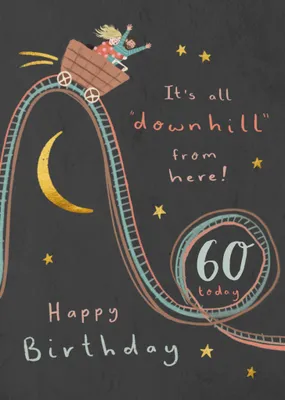 It's all
"downhill"
from
here!
60
today
Happy
Birthday